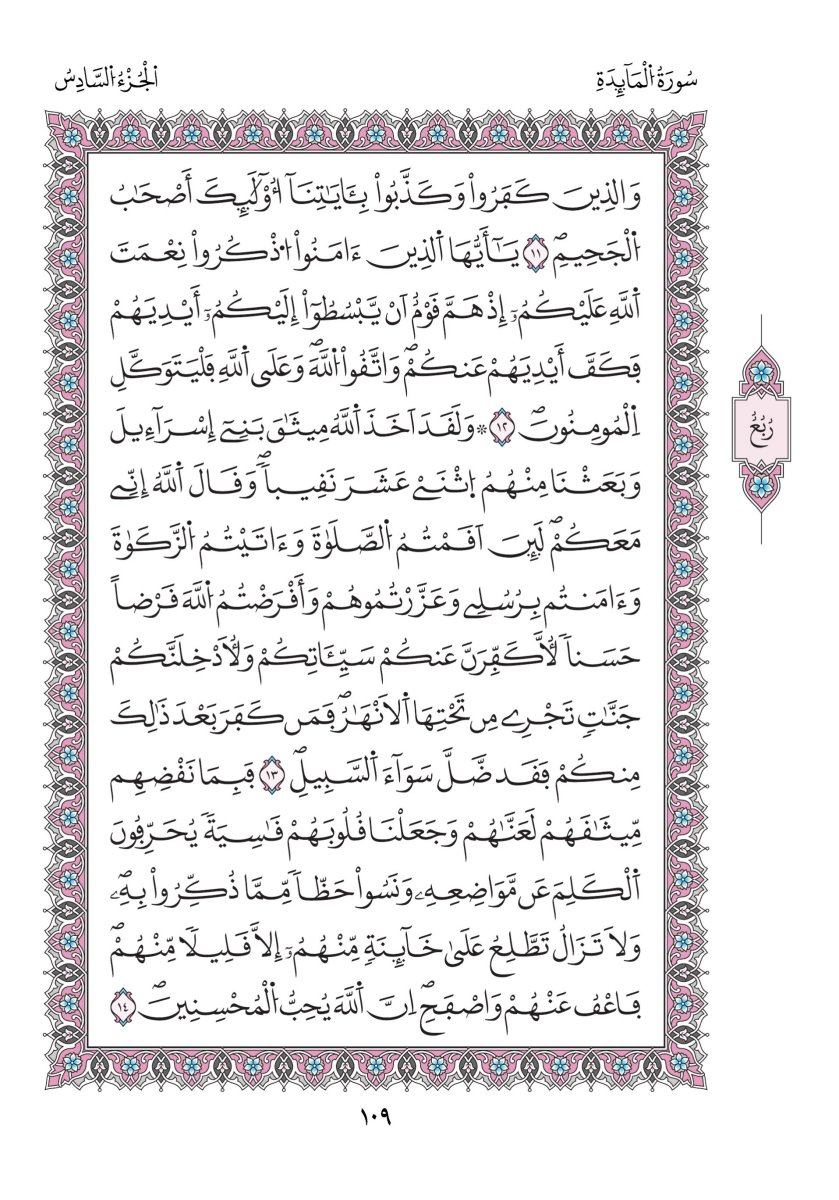 سُورَةُ اُ۬لْمَآئِدَةِ
اَ۬لْجُزْءُ اُ۬لسَّادِسُ
وَالذِينَ كَفَرُواْ وَكَذَّبُواْ بِـَٔايَٰتِنَآ أُوْلَٰٓئِكَ أَصْحَٰبُ
اُ۬لْجَحِيمِۖ ١١ يَٰٓأَيُّهَا اَ۬لذِينَ ءَامَنُواْ اُ۟ذْكُرُواْ نِعْمَتَ
اَ۬للَّهِ عَلَيْكُمُۥٓ إِذْ هَمَّ قَوْمٌ اَنْ يَّبْسُطُوٓاْ إِلَيْكُمُۥٓ أَيْدِيَهُمْ
فَكَفَّ أَيْدِيَهُمْ عَنكُمْۖ وَاتَّقُواْ اُ۬للَّهَۖ وَعَلَى اَ۬للَّهِ فَلْيَتَوَكَّلِ
اِ۬لْمُومِنُونَۖ ١٢ ۞وَلَقَدَ اَخَذَ اَ۬للَّهُ مِيثَٰقَ بَنِےٓ إِسْرَآءِيلَ
وَبَعَثْنَا مِنْهُمُ اُ۪ثْنَےْ عَشَرَ نَقِيباٗۖ وَقَالَ اَ۬للَّهُ إِنِّے
مَعَكُمْۖ لَئِنَ اَقَمْتُمُ اُ۬لصَّلَوٰةَ وَءَاتَيْتُمُ اُ۬لزَّكَوٰةَ
وَءَامَنتُم بِرُسُلِے وَعَزَّرْتُمُوهُمْ وَأَقْرَضْتُمُ اُ۬للَّهَ قَرْضاً
حَسَناٗ لَّأُكَفِّرَنَّ عَنكُمْ سَيِّـَٔاتِكُمْ وَلَأُدْخِلَنَّكُمْ
جَنَّٰتٖ تَجْرِے مِن تَحْتِهَا اَ۬لَانْهَٰرُۖ فَمَن كَفَرَ بَعْدَ ذَٰلِكَ
مِنكُمْ فَقَد ضَّلَّ سَوَآءَ اَ۬لسَّبِيلِۖ ١٣ فَبِمَا نَقْضِهِم
مِّيثَٰقَهُمْ لَعَنَّٰهُمْ وَجَعَلْنَا قُلُوبَهُمْ قَٰسِيَةٗ يُحَرِّفُونَ
اَ۬لْكَلِمَ عَن مَّوَاضِعِهِۦ وَنَسُواْ حَظّاٗ مِّمَّا ذُكِّرُواْ بِهِۦۖ
وَلَا تَزَالُ تَطَّلِعُ عَلَىٰ خَآئِنَةٖ مِّنْهُمُۥٓ إِلَّا قَلِيلٗا مِّنْهُمْۖ
فَاعْفُ عَنْهُمْ وَاصْفَحِۖ اِنَّ اَ۬للَّهَ يُحِبُّ اُ۬لْمُحْسِنِينَۖ ١٤
رُبُعُ
١٠٩